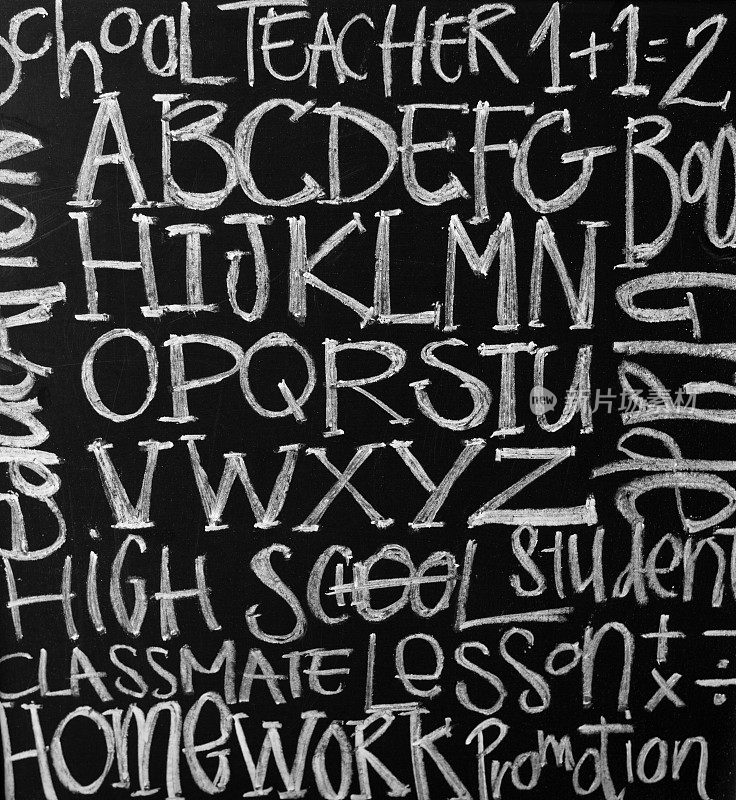 School TEACHER 1+1=2
ABCDEFG
HIJKLMN
OPQRSTU
VWXYZ
HiGH SCHOOL Student
CLASSMATE Lesson + - × ÷
HOMEWORK Promotion
Education
Boo
new 新片场素材